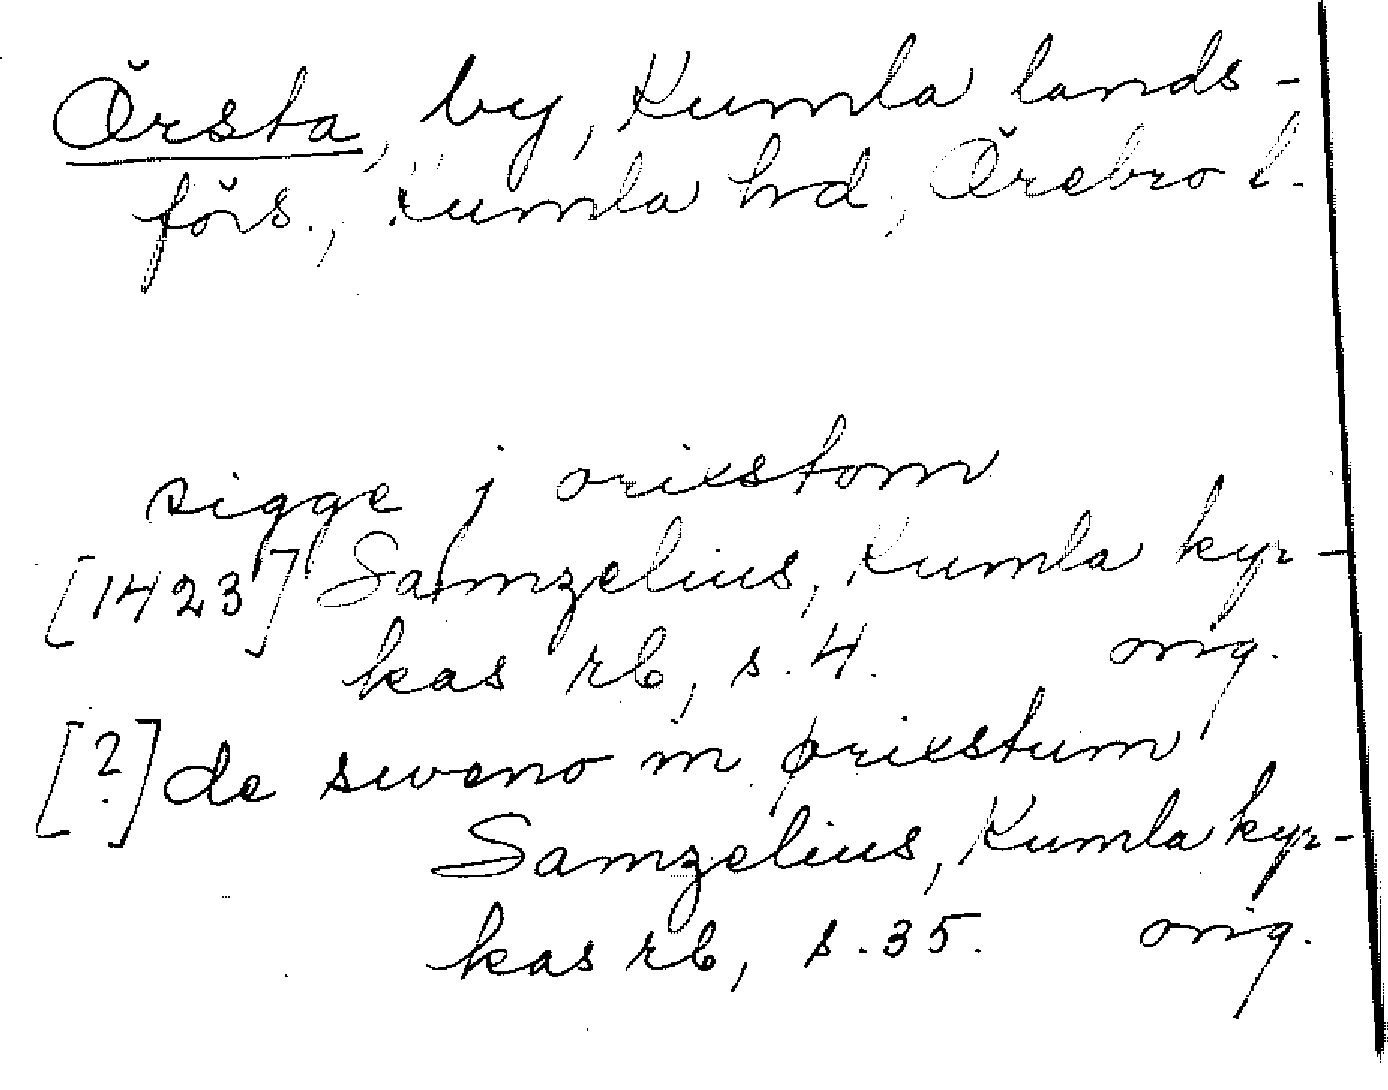 Örsta, by, Kumla lands-
förs., Kumla hd, Örebro l.
sigge j orixstom
[1423] Samzelius, Kumla kyr-
kas rb, s. 4. orig.
[?] de sweno m ørixstum
Samzelius, Kumla kyr-
kas rb, s. 35. orig.